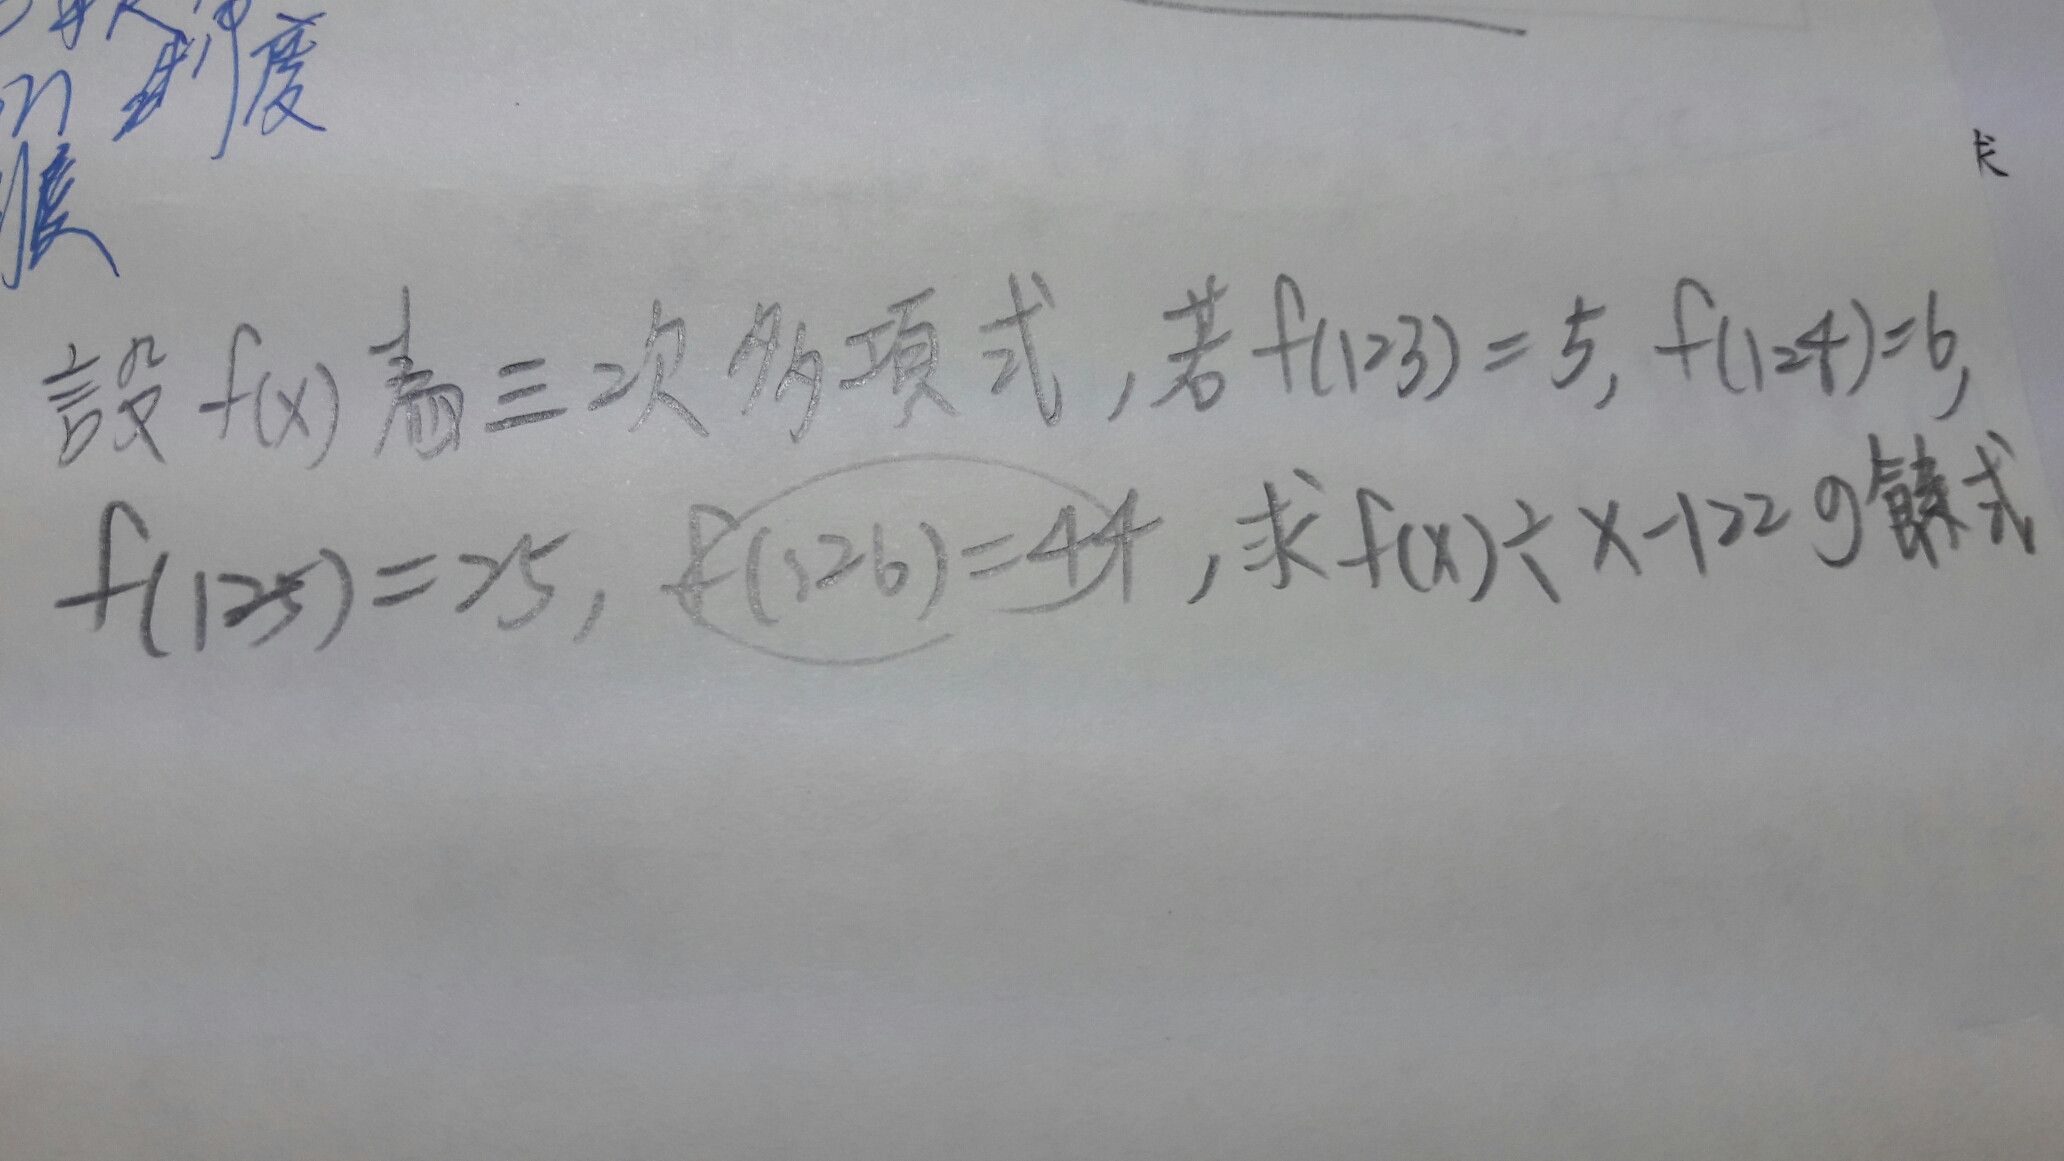 制度
設f(x)為三次多項式,若f(123)=5, f(124)=6,
f(125)=25, f(126)=44,求f(x)÷x-122的餘式